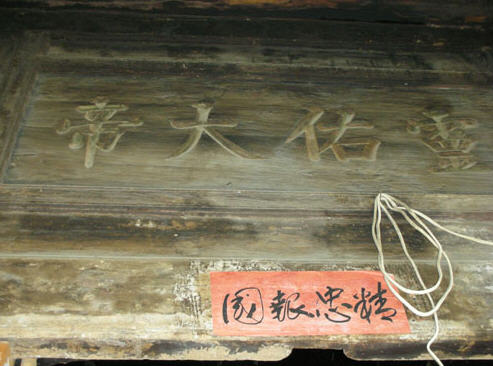 靈佑大帝
精忠報國